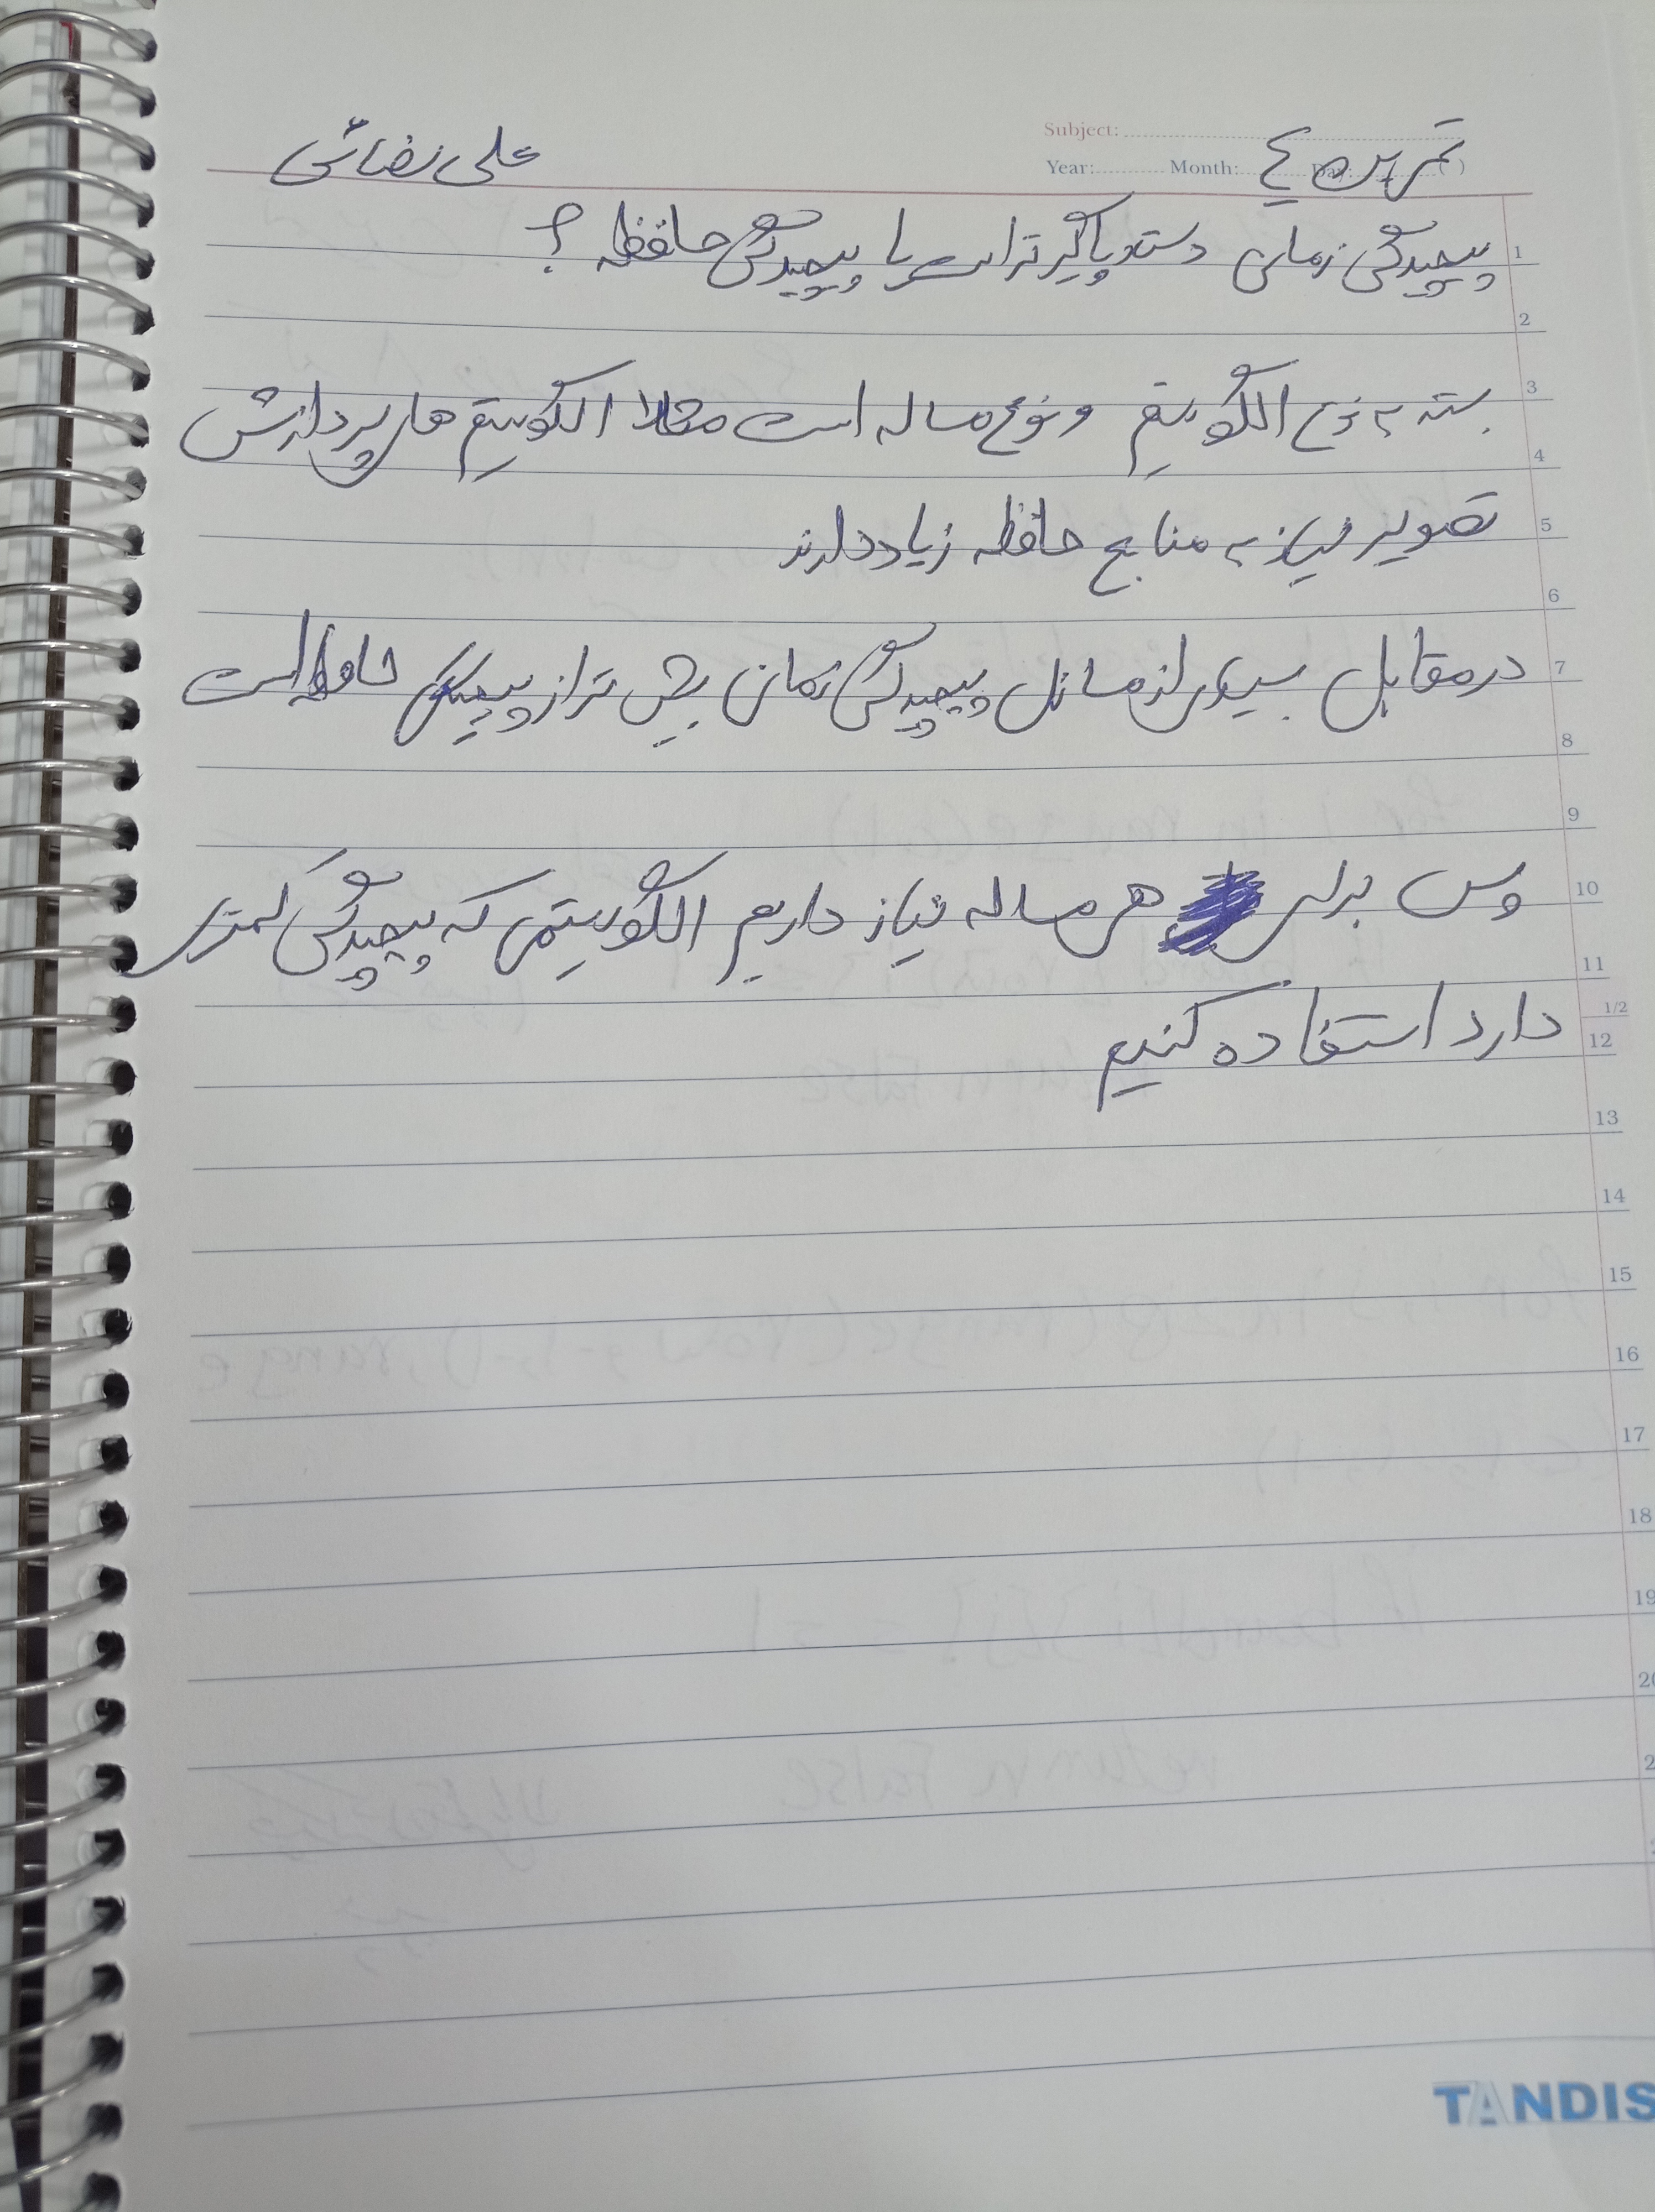 تمرین ٤
علی رضائی
Subject:
Year: Month: Day: ( )
پیچیدگی زمانی دست و پاگیر تر است یا پیچیدگی حافظه ؟
بسته به نوع الگوریتم و نوع مساله است مثلا الگوریتم های پردازش
تصویر نیاز به منابع حافظه زیاد دارند
در مقابل بسیاری از مسائل پیچیدگی زمانی بیش تر از پیچیدگی حافظه است
پس برای هر مساله نیاز داریم الگوریتمی که پیچیدگی کمتری
دارد استفاده کنیم
1
2
3
4
5
6
7
8
9
10
11
1/2
12
13
14
15
16
17
18
19
TANDIS